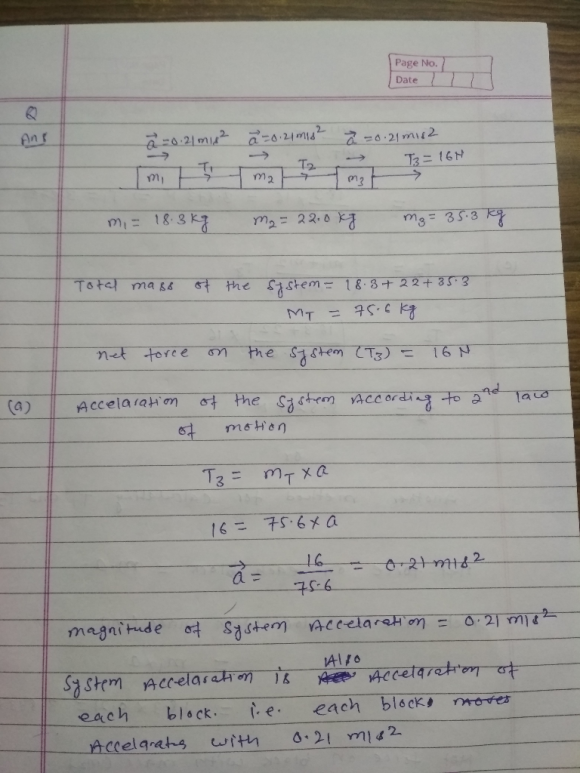 Page No.
Date
Q
Ans
a⃗=0.21m/s² a⃗=0.21m/s² a⃗=0.21m/s²
m₁ T₁ m₂ T₂ m₃ T₃=16N
m₁= 18.3kg m₂= 22.0 kg m₃= 35.3 kg
Total mass of the system= 18.3+22+35.3
M_T = 75.6 kg
net force on the system (T₃) = 16 N
(a) Accelaration of the system According to 2nd law
of motion
T₃ = m_T × a
16 = 75.6 × a
a⃗ = 16/75.6 = 0.21 m/s²
magnitude of system Accelaration = 0.21 m/s²
system Accelaration is Also Accelaration of
each block. i.e. each block moves
Accelarates with 0.21 m/s²